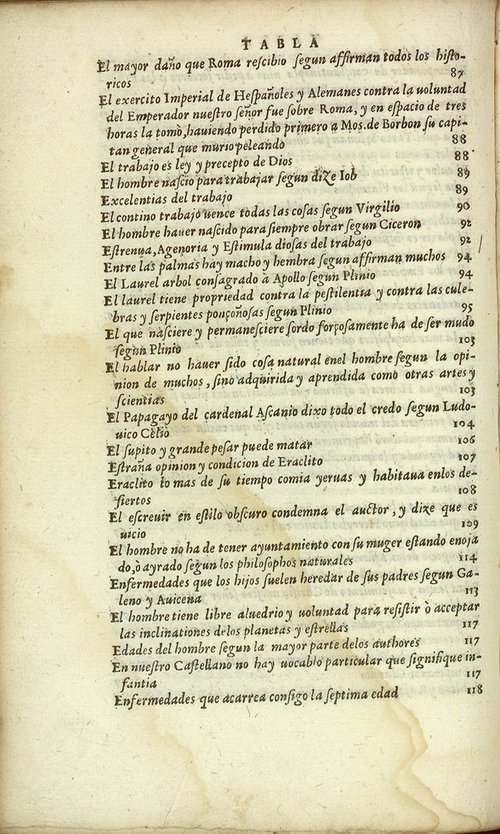 TABLA
El mayor daño que Roma rescibio segun affirman todos los histo-
ricos 87
El exercito Imperial de Hespañoles y Alemanes contra la voluntad
del Emperador nuestro señor fue sobre Roma, y en espacio de tres
horas la tomò, hauiendo perdido primero a Mos. de Borbon su capi-
tan general que murio peleando 88
El trabajo es ley y precepto de Dios 88
El hombre nascio para trabajar segun dize Iob 89
Excelentias del trabajo 89
El contino trabajo uence todas las cosas segun Virgilio 90
El hombre hauer nascido para siempre obrar segun Ciceron 92
Estrenua, Agenoria y Estimula diosas del trabajo 92
Entre las palmas hay macho y hembra segun affirman muchos 94
El Laurel arbol consagrado à Apollo segun Plinio 94
El laurel tiene propriedad contra la pestilentia y contra las cule-
bras y serpientes ponçoñosas segun Plinio 95
El que nasciere y permanesciere sordo forçosamente ha de ser mudo
segun Plinio 103
El hablar no hauer sido cosa natural enel hombre segun la opi-
nion de muchos, sino adquirida y aprendida como otras artes y
scientias 103
El Papagayo del cardenal Ascanio dixo todo el credo segun Ludo-
uico Celio 104
El supito y grande pesar puede matar 106
Estraña opinion y condicion de Eraclito 107
Eraclito lo mas de su tiempo comia yeruas y habitaua enlos de-
siertos 108
El escreuir en estilo obscuro condemna el auctor, y dize que es
uicio 109
El hombre no ha de tener ayuntamiento con su muger estando enoja
do, ò ayrado segun los philosophos naturales 114
Enfermedades que los hijos suelen heredar de sus padres segun Ga-
leno y Auicena 113
El hombre tiene libre aluedrio y voluntad para resistir ò acceptar
las inclinationes delos planetas y estrellas 117
Edades del hombre segun la mayor parte delos authores 117
En nuestro Castellano no hay uocablo particular que signifique in-
fantia 117
Enfermedades que acarrea consigo la septima edad 118